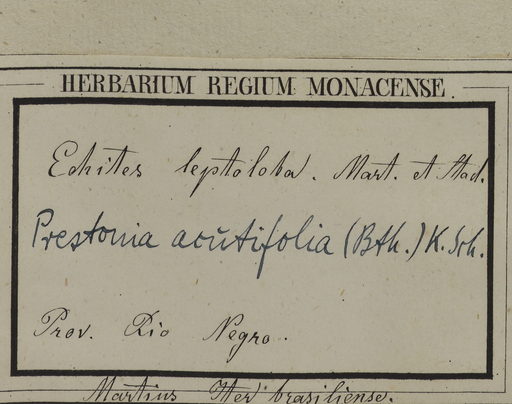 HERBARIUM REGIUM MONACENSE.
Echites leptoloba. Mart. et Stad.
Prestonia acutifolia (Bth.) K. Sch.
Prov. Rio Negro.
Martius Iter brasiliense.